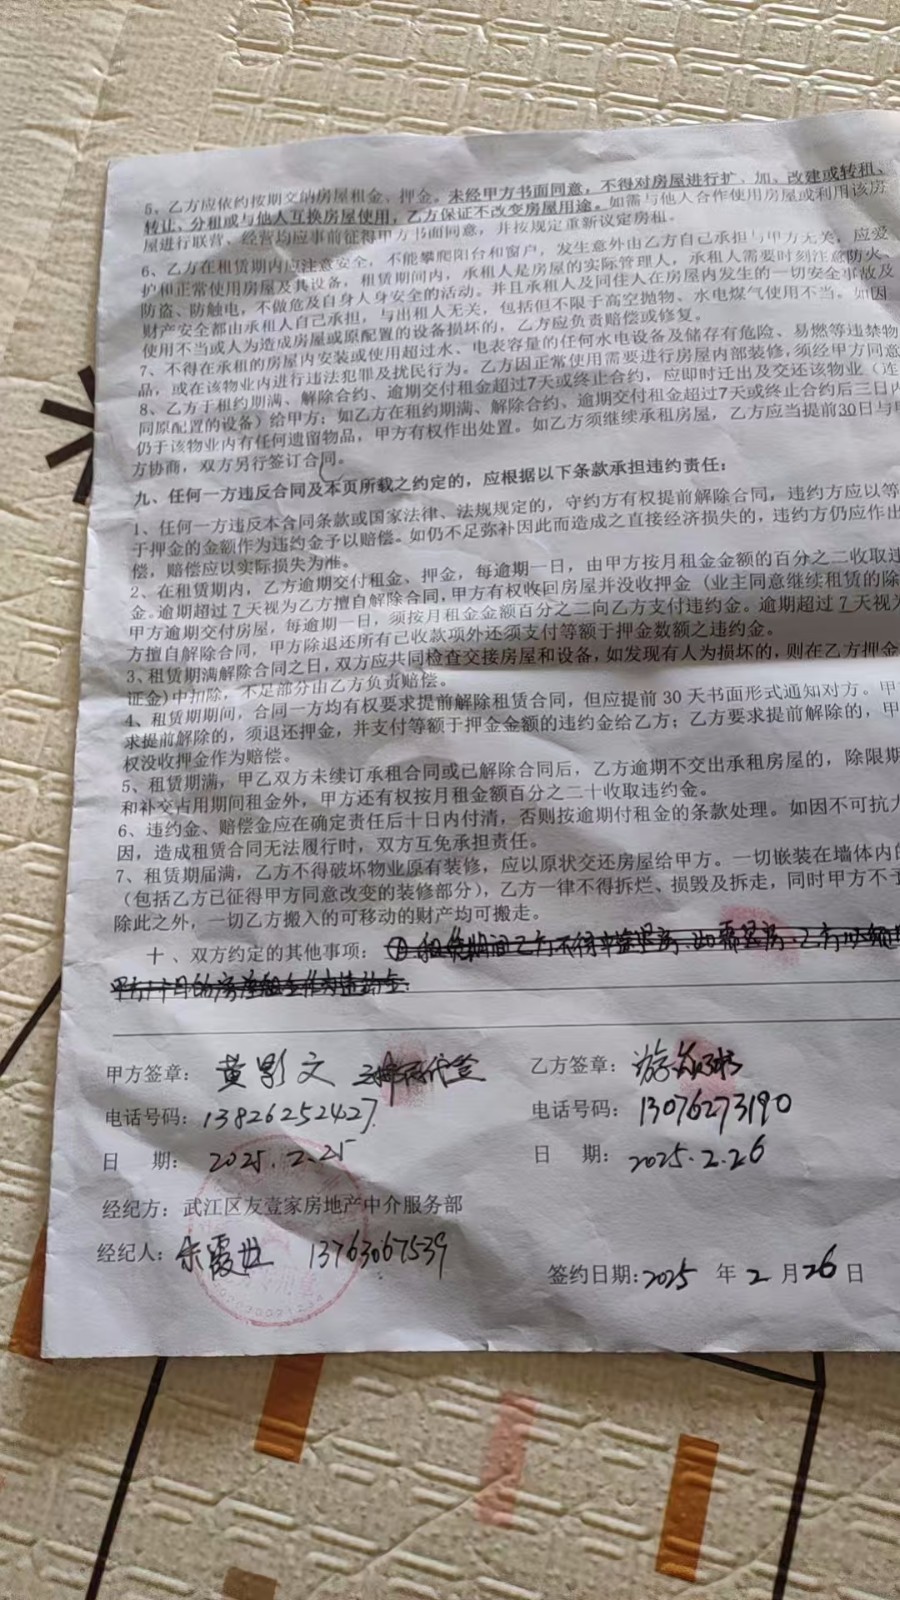 5、乙方应依约按期交纳房屋租金、押金，未经甲方书面同意，不得对房屋进行扩、加、改建或转租、
转让、分租或与他人互换房屋使用，乙方保证不改变房屋用途。如需与他人合作使用房屋或利用该房
屋进行联营、经营均应事前征得甲方书面同意，并按规定重新议定房租。
6、乙方在租赁期内应注意安全，不能攀爬阳台和窗户，发生意外由乙方自己承担与甲方无关，应爱
护和正常使用房屋及其设备，租赁期间内，承租人是房屋的实际管理人，承租人需要时刻注意防火、
防盗、防触电，不做危及自身人身安全的活动。并且承租人及同住人在房屋内发生的一切安全事故及
财产安全都由承租人自己承担，与出租人无关，包括但不限于高空抛物、水电煤气使用不当。如因
使用不当或人为造成房屋或原配置的设备损坏的，乙方应负责赔偿或修复。
7、不得在承租的房屋内安装或使用超过水、电表容量的任何水电设备及储存有危险、易燃等违禁物
品，或在该物业内进行违法犯罪及扰民行为。乙方因正常使用需要进行房屋内部装修，须经甲方同意
8、乙方于租约期满、解除合约、逾期交付租金超过7天或终止合约，应即时迁出及交还该物业（连
同原配置的设备）给甲方；如乙方在租约期满、解除合约、逾期交付租金超过7天或终止合约后三日内
仍于该物业内有任何遗留物品，甲方有权作出处置。如乙方须继续承租房屋，乙方应当提前30日与甲
方协商，双方另行签订合同。
九、任何一方违反合同及本页所载之约定的，应根据以下条款承担违约责任：
1、任何一方违反本合同条款或国家法律、法规规定的，守约方有权提前解除合同，违约方应以等
于押金的金额作为违约金予以赔偿。如仍不足弥补因此而造成之直接经济损失的，违约方仍应作出
偿，赔偿应以实际损失为准。
2、在租赁期内，乙方逾期交付租金、押金，每逾期一日，由甲方按月租金金额的百分之二收取违
金。逾期超过 7 天视为乙方擅自解除合同，甲方有权收回房屋并没收押金（业主同意继续租赁的除
甲方逾期交付房屋，每逾期一日，须按月租金金额百分之二向乙方支付违约金。逾期超过 7 天视为
方擅自解除合同，甲方除退还所有已收款项外还须支付等额于押金数额之违约金。
3、租赁期满解除合同之日，双方应共同检查交接房屋和设备，如发现有人为损坏的，则在乙方押金
证金)中扣除，不足部分由乙方负责赔偿。
4、租赁期期间，合同一方均有权要求提前解除租赁合同，但应提前 30 天书面形式通知对方。甲
求提前解除的，须退还押金，并支付等额于押金金额的违约金给乙方；乙方要求提前解除的，甲
权没收押金作为赔偿。
5、租赁期满，甲乙双方未续订承租合同或已解除合同后，乙方逾期不交出承租房屋的，除限期
和补交占用期间租金外，甲方还有权按月租金额百分之二十收取违约金。
6、违约金、赔偿金应在确定责任后十日内付清，否则按逾期付租金的条款处理。如因不可抗力
因，造成租赁合同无法履行时，双方互免承担责任。
7、租赁期届满，乙方不得破坏物业原有装修，应以原状交还房屋给甲方。一切嵌装在墙体内的
（包括乙方已征得甲方同意改变的装修部分），乙方一律不得拆烂、损毁及拆走，同时甲方不予
除此之外，一切乙方搬入的可移动的财产均可搬走。
十、双方约定的其他事项：
甲方签章：黄影文 代签
乙方签章：游
电话号码：13826252427
电话号码：13076273190
日 期：2025.2.25
日 期：2025.2.26
经纪方：武江区友壹家房地产中介服务部
经纪人：霞 13763067539
签约日期：2025 年 2 月 26 日